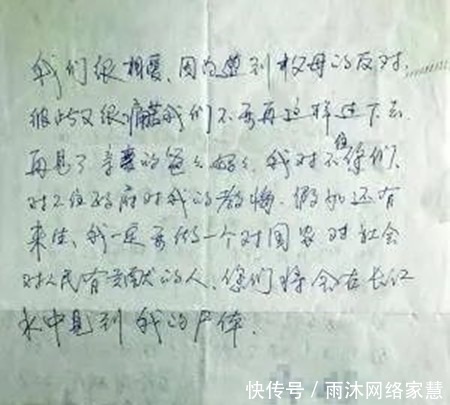 我们很相爱，因为遭到父母的反对，
彼此又很痛苦我们不要再这样过下去
再见了亲爱的爸爸妈妈，我对不住你们，
对不住政府对我的教悔，假如还有
来生，我一定要做一个对国家对社会
对人民有贡献的人，你们将会在长江
水中见到我的尸体.
快传号/雨沐网络家慧